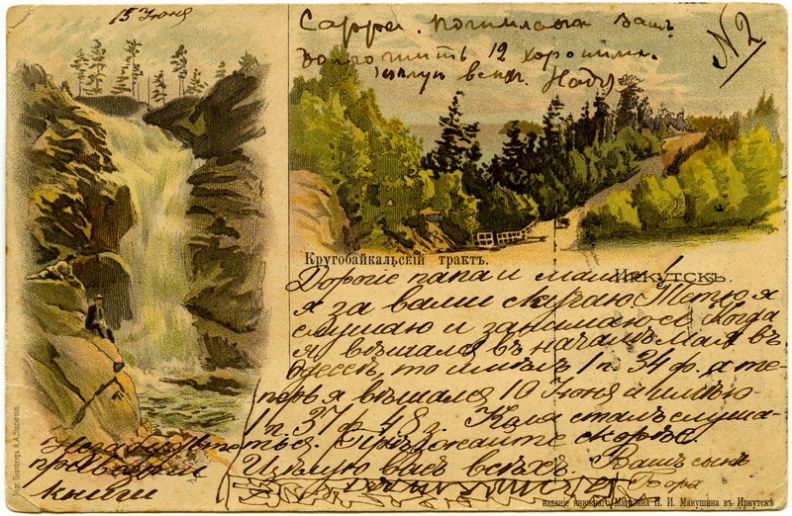 15 Июня
Сарра. погимласья вашъ
12 хорошими.
цѣлую всѣхъ. Надя
№ 2
Кругобайкальскій трактъ.
Иркутскъ.
Дорогіе папа и мама!
я за вами скучаю Тетю я
слушаю и занимаюсь. Когда
я вѣшался въ началѣ Мая въ
Одессѣ, то имѣлъ 1 п. 34 ф. а те-
перь я вѣшался 10 Июня и имѣю
1 п. 37 ф. 48 з. Коля сталъ слуша-
ться. Приѣзжайте скорѣе.
Цѣлую васъ всѣхъ. Вашъ сынъ
Боря
книги
изданіе книжнаго Магазина П. И. Макушина въ Иркутскѣ